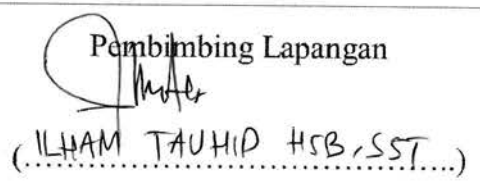 Pembimbing Lapangan
(ILHAM TAUHID HSB, SST)